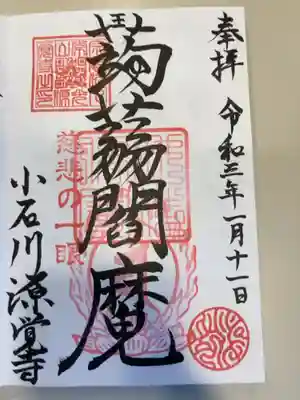 奉拝
令和三年一月十一日
蒟蒻閻魔
慈悲の一眼
小石川源覚寺